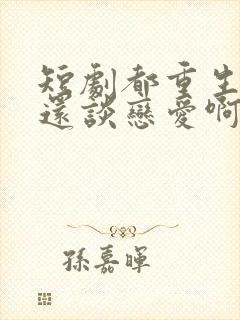 短劇都重生
還談戀愛啊
孫嘉暉